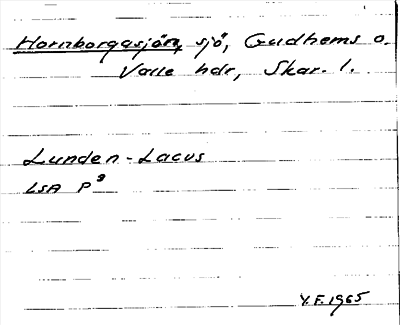 Hornborgasjön, sjö, Gudhems o.
Valle hdr, Skar. l.
Lunden-Lacus
LSA P³
Y.F. 1965